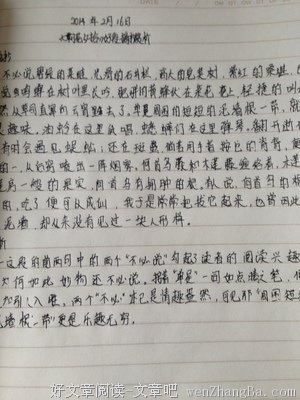 2014 年 2月 16日
不必说碧绿的菜畦,光滑的石井栏,高大的皂荚树,紫红的桑椹,
鸣蝉在树叶里长吟,肥胖的黄蜂伏在菜花上,轻捷的叫
从草间直窜向云霄里去了。单是周围的短短的泥墙根一带,就
趣味。油蛉在这里低唱,蟋蟀们在这里弹琴。翻开断
有时会遇见蜈蚣;还有斑蝥,倘若用手指按住它的脊背,
的一,从后窍喷出一阵烟雾。何首乌藤和木莲藤缠络着,木莲
房一般的果实,何首乌有拥肿的根。有人说,何首乌的根
的,吃了便可以成仙,我于是常常把拔它起来,也曾因此
泥墙,却从来没有见过一块人形样。
析
一这段的前两句中的两个“不必说”勾起读者的阅读兴趣
何如此好物还不必说。接着“单是”一词如点睛之笔,
加引人入胜。两个“不必”本已是情趣盎然,自见那“周围短
泥墙根一带”更是乐趣无穷。
好文章阅读-文章吧 wenZhangBa.com